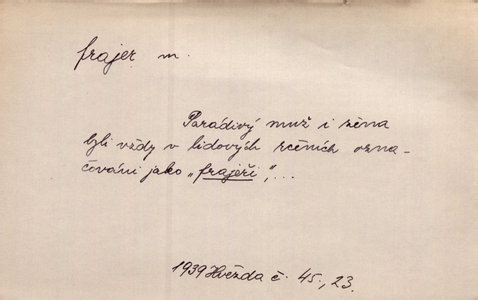 frajer m.
Parádivý muž i žena
byli vždy v lidových rčeních ozna-
čováni jako „frajeři“,...
1939 Hvězda č. 45., 23.